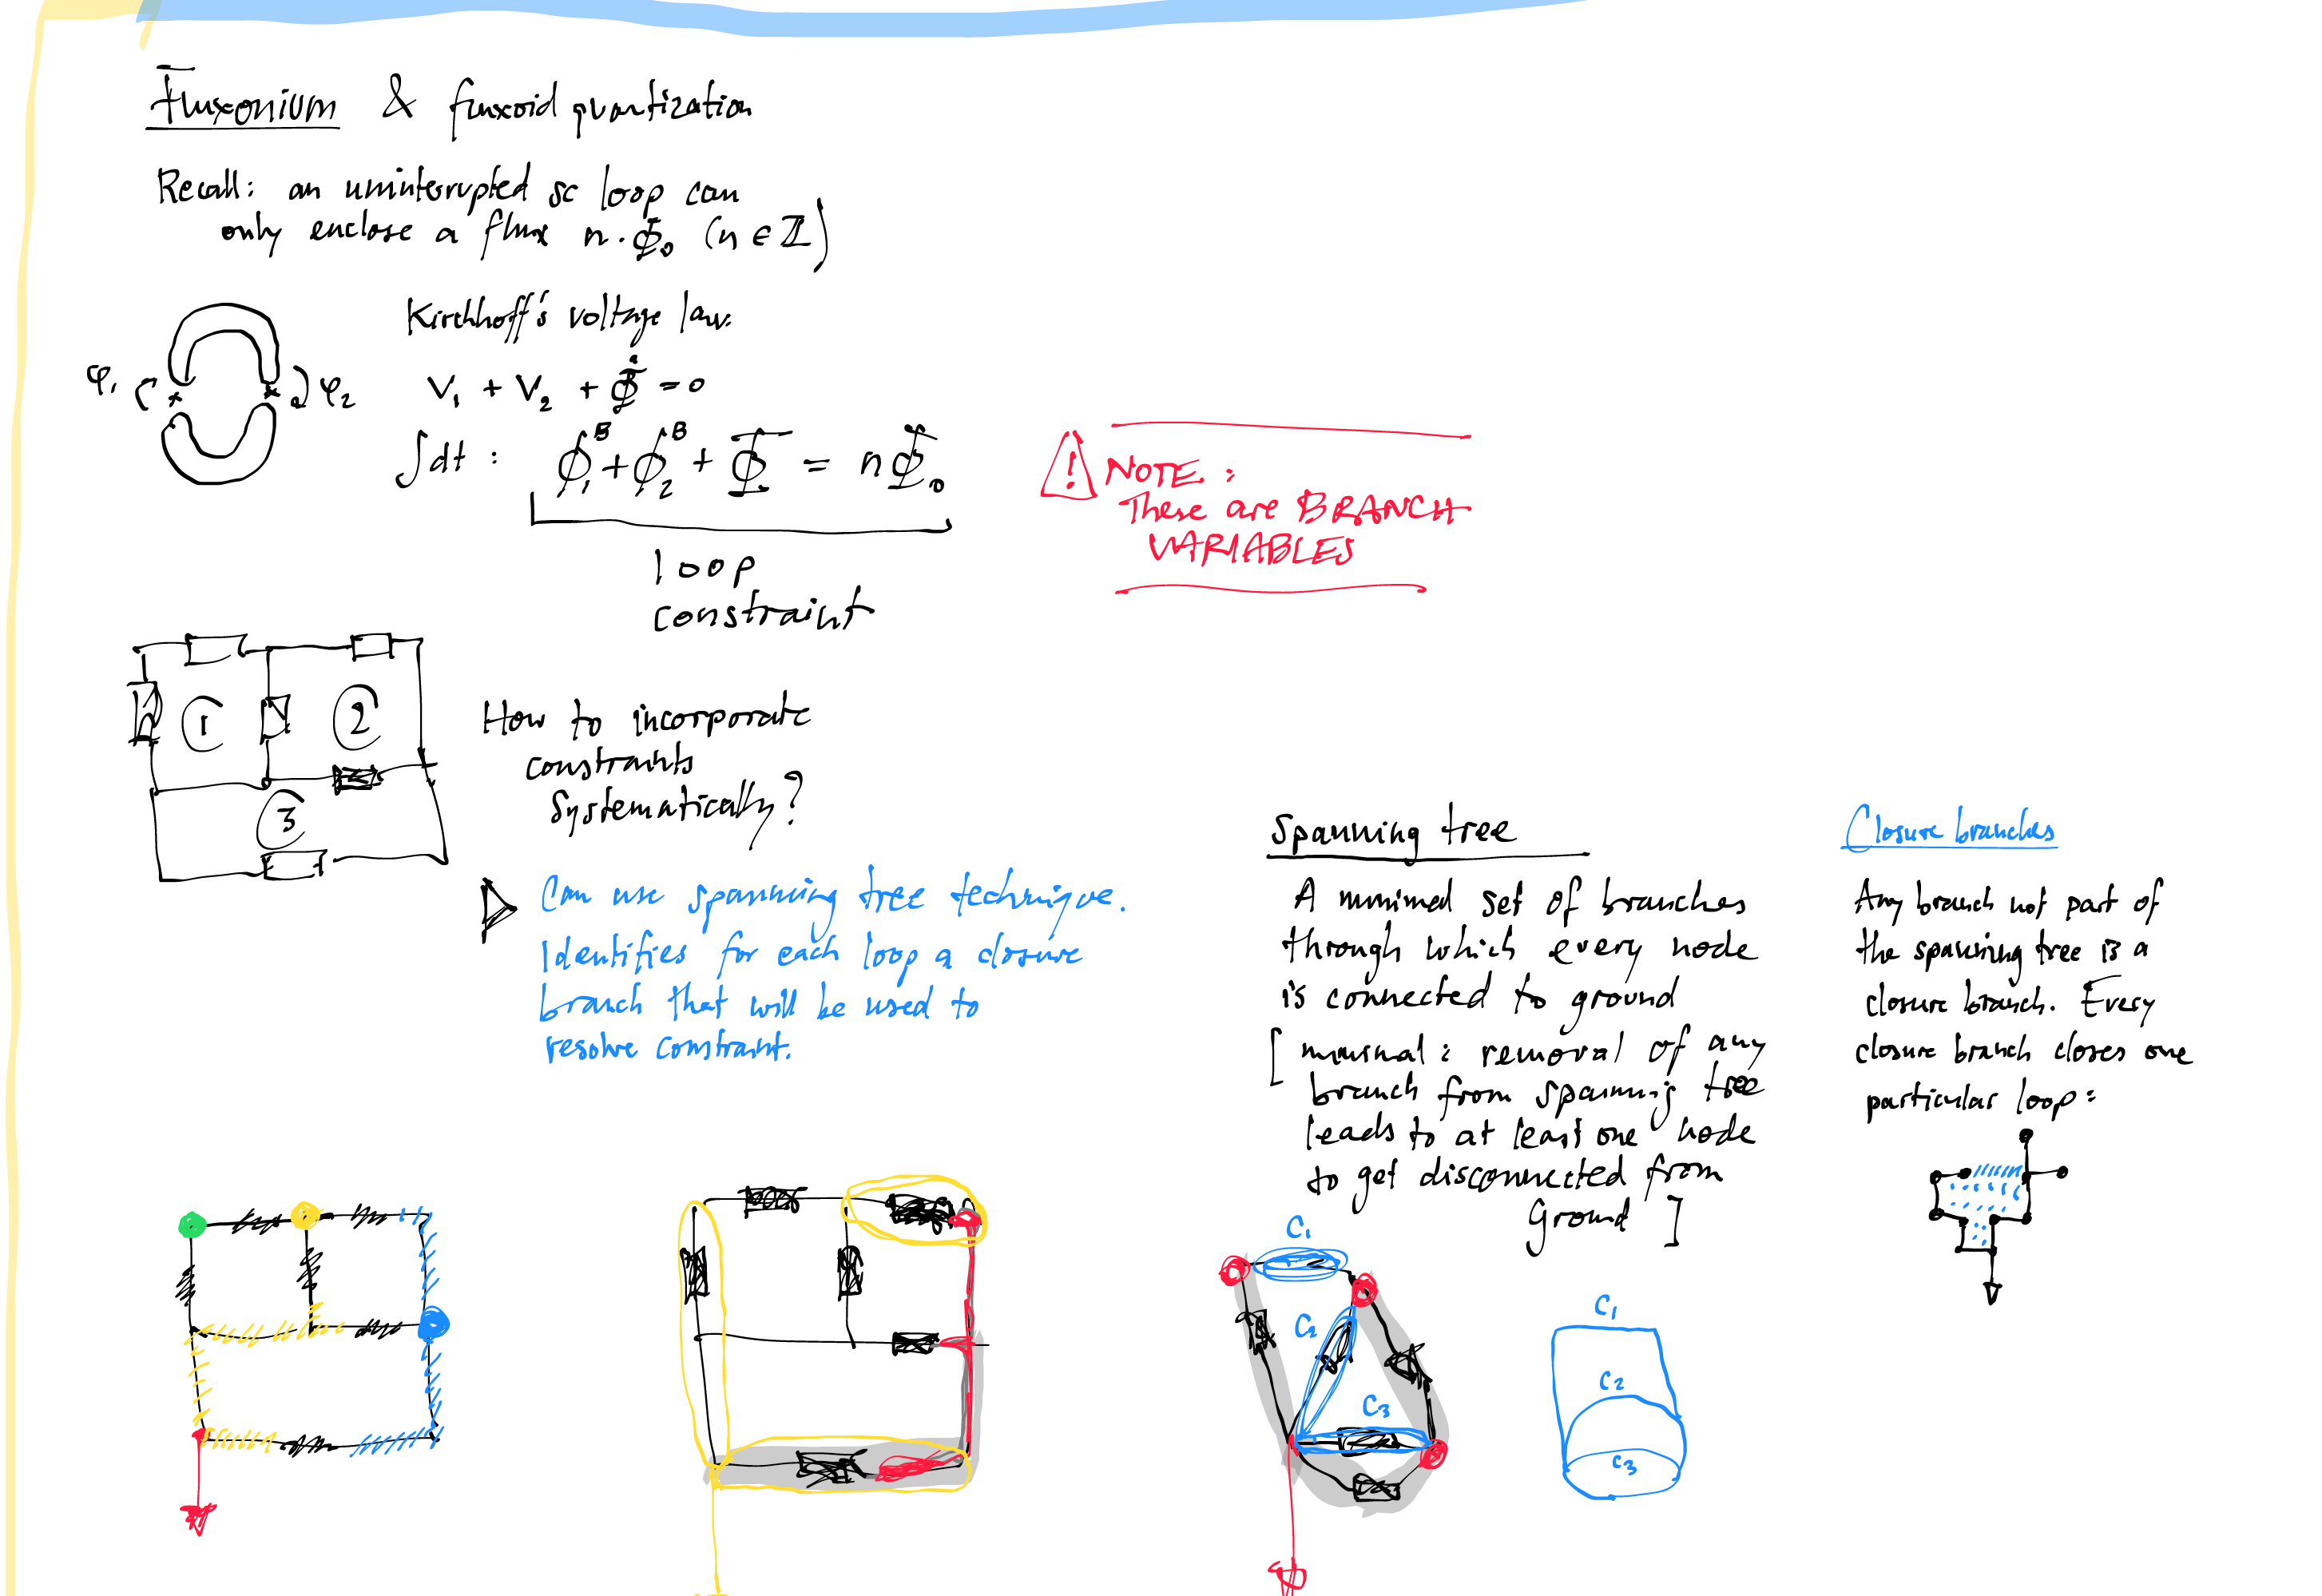 Fluxonium & fluxoid quantization
Recall: an uninterrupted sc loop can
only enclose a flux n·Φ₀ (n ∈ ℤ)
Kirchhoff's voltage law:
φ₁
φ₂
V₁ + V₂ + Φ̇ = 0
∫dt : ϕ₁ᴮ + ϕ₂ᴮ + Φ = nΦ₀
loop
constraint
! NOTE:
These are BRANCH
VARIABLES
1
2
3
How to incorporate
constraints
systematically?
Can use spanning tree technique.
Identifies for each loop a closure
branch that will be used to
resolve constraint.
Spanning tree
A minimal set of branches
through which every node
is connected to ground
[ minimal: removal of any
branch from spanning tree
leads to at least one node
to get disconnected from
Ground ]
Closure branches
Any branch not part of
the spanning tree is a
closure branch. Every
closure branch closes one
particular loop:
C₁
C₂
C₃
C₁
C₂
C₃